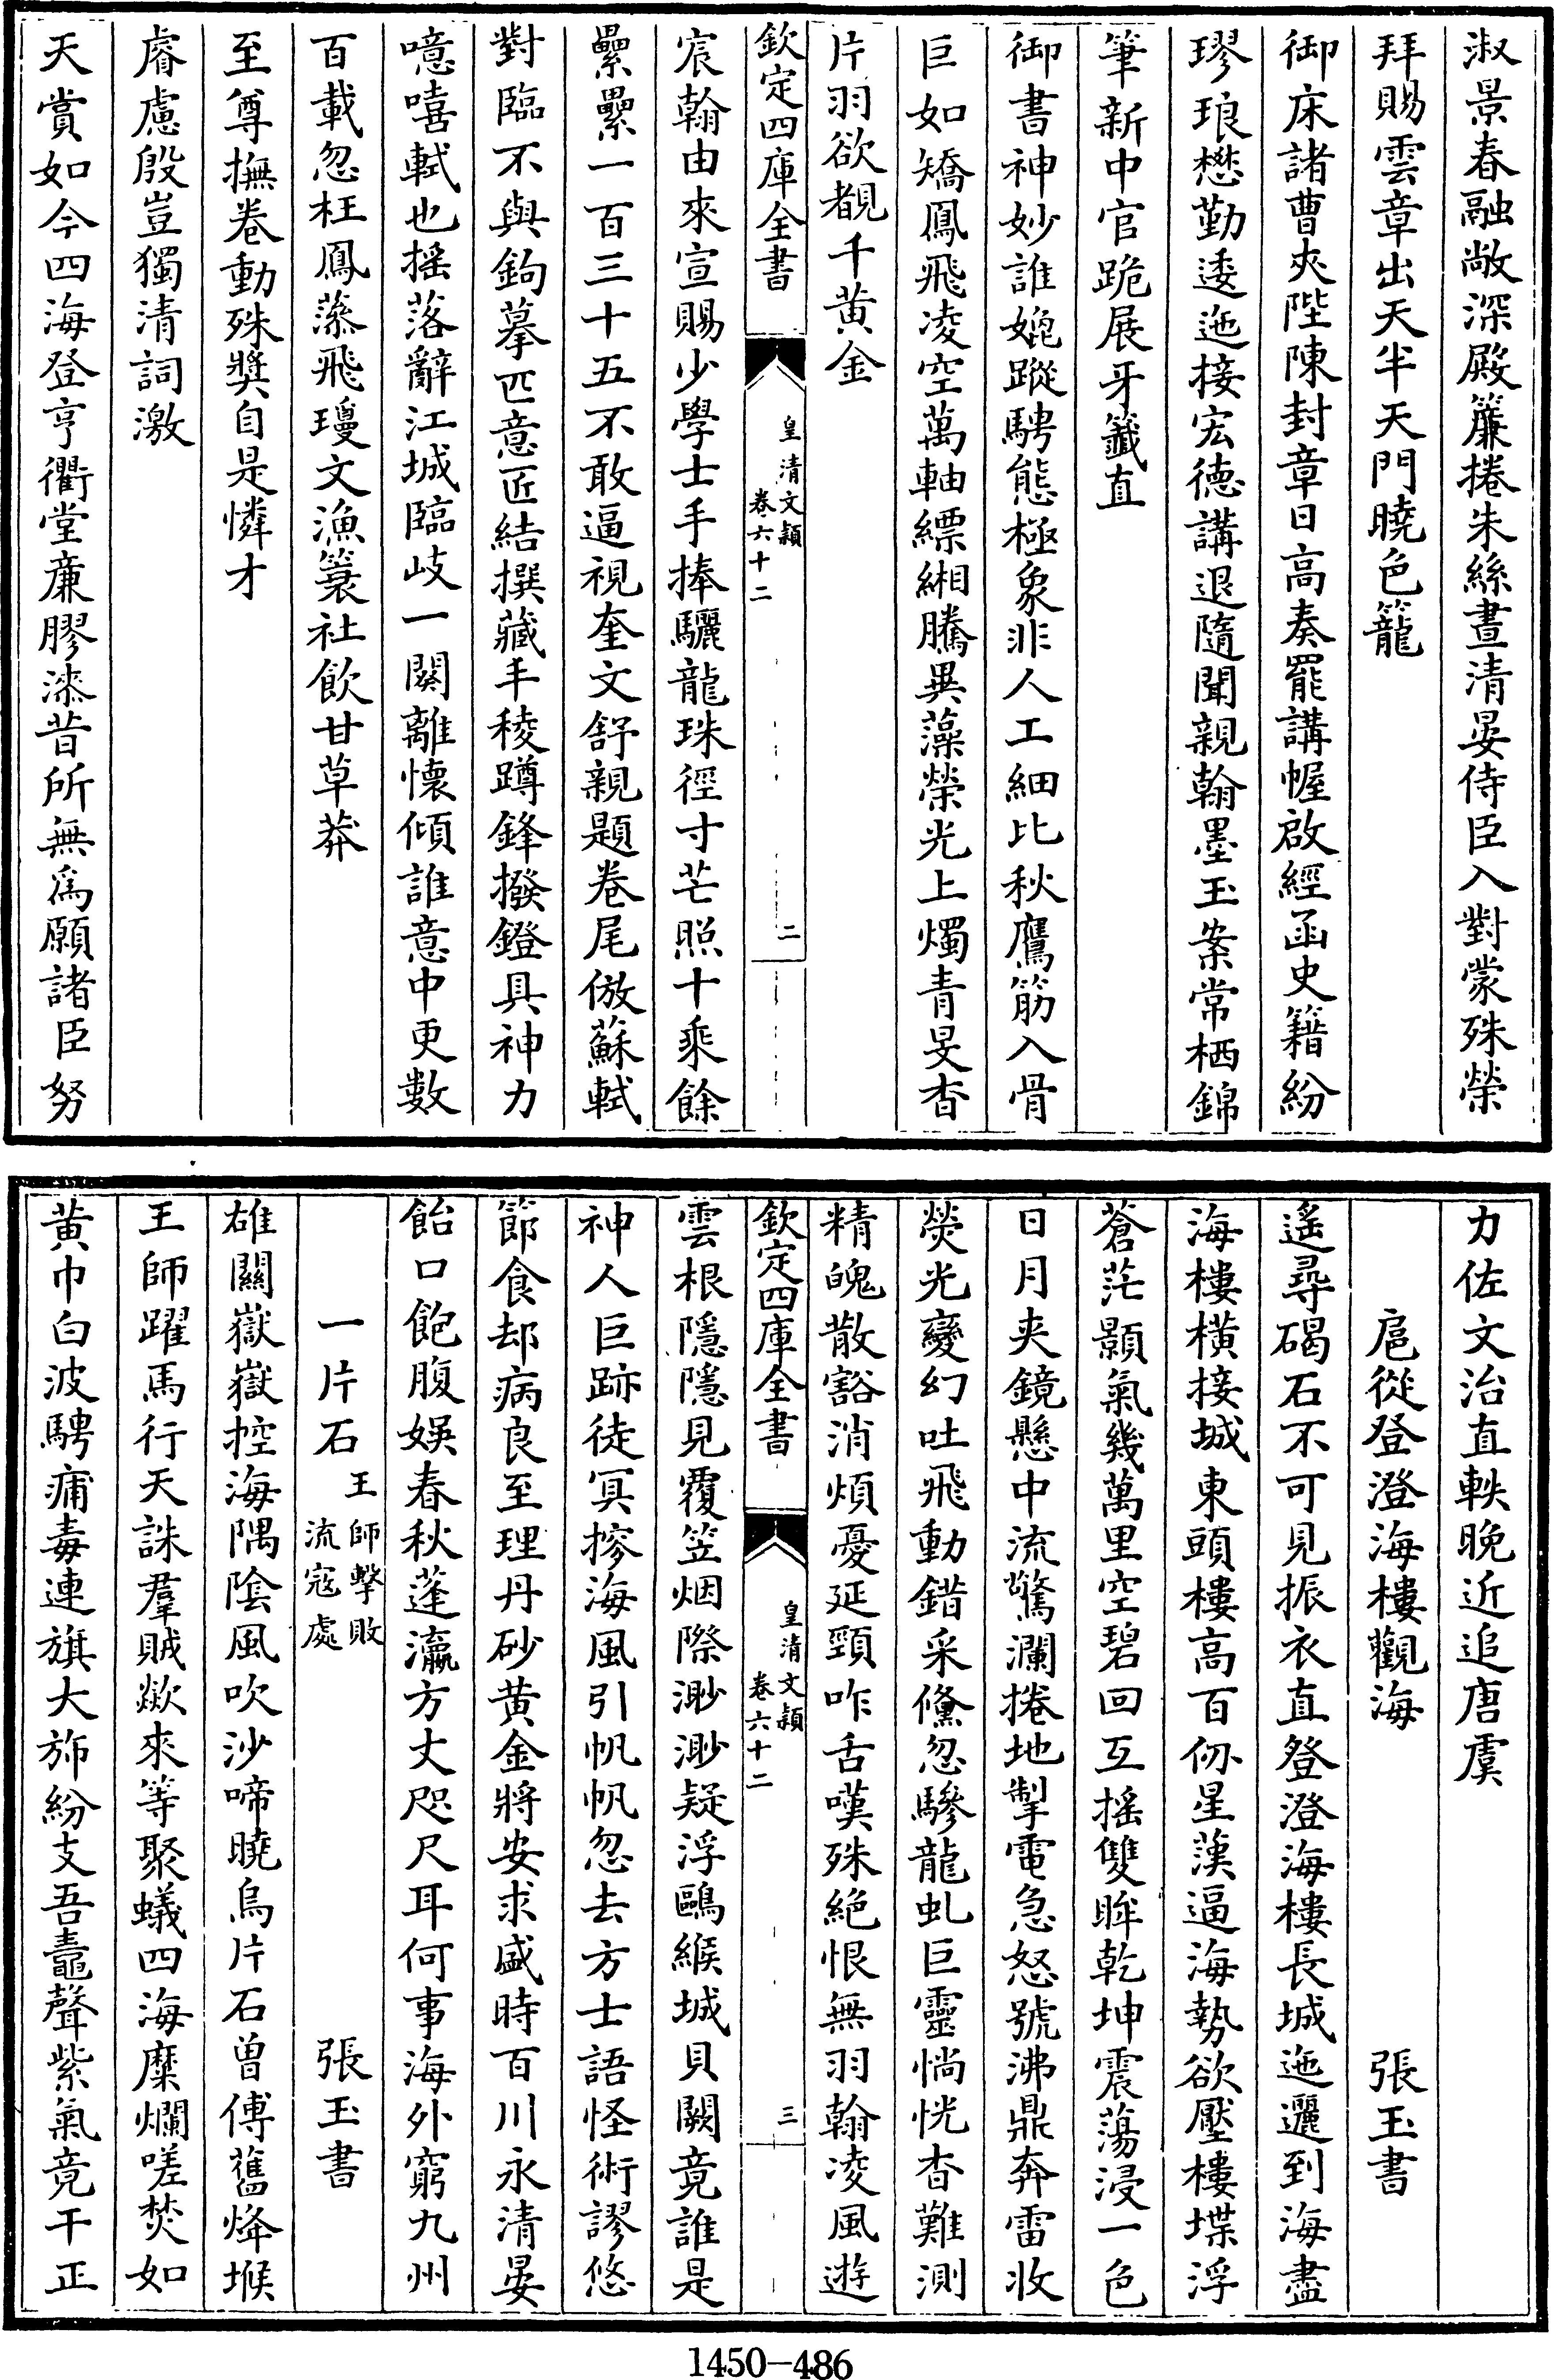 淑景春融敞深殿簾捲朱絲晝清晏侍臣入對蒙殊榮
拜賜雲章出天半天門曉色籠
御床諸曹夾陛陳封章日高奏罷講幄啟經函史籍紛
璆琅懋勤逶迤接宏德講退隨聞親翰墨玉案常栖錦
筆新中官跪展牙籤直
御書神妙誰媲蹤騁態極象非人工細比秋鷹筋入骨
巨如矯鳳飛凌空萬軸縹緗騰異藻榮光上燭青旻杳
片羽欲覩千黄金
欽定四庫全書
皇清文穎
卷六十二
二
宸翰由來宣賜少學士手捧驪龍珠徑寸芒照十乘餘
纍纍一百三十五不敢逼視奎文舒親題卷尾倣蘇軾
對臨不與鉤摹匹意匠結撰藏手稜蹲鋒撥鐙具神力
噫嘻軾也摇落辭江城臨岐一闋離懷傾誰意中更數
百載忽枉鳳藻飛瓊文漁簑社飲甘草莽
至尊撫卷動殊獎自是憐才
睿慮殷豈獨清詞激
天賞如今四海登亨衢堂廉膠漆昔所無爲願諸臣努
力佐文治直軼晚近追唐虞
扈從登澄海樓觀海
張玉書
遥尋碣石不可見振衣直登澄海樓長城迤邐到海盡
海樓橫接城東頭樓高百仞星漢逼海勢欲壓樓堞浮
蒼茫顥氣幾萬里空碧回互摇雙眸乾坤震蕩浸一色
日月夾鏡懸中流驚瀾捲地掣電急怒號沸鼎奔雷收
熒光變幻吐飛動錯采儵忽驂龍虬巨靈惝恍杳難測
精魄散豁消煩憂延頸咋舌嘆殊絶恨無羽翰凌風遊
欽定四庫全書
皇清文穎
卷六十二
三
雲根隱隱見覆笠烟際渺渺疑浮鷗緱城貝闕竟誰是
神人巨跡徒冥搜海風引帆帆忽去方士語怪術謬悠
節食却病良至理丹砂黄金將安求盛時百川永清晏
飴口飽腹娱春秋蓬瀛方丈咫尺耳何事海外窮九州
一片石
王師擊敗
流寇處
張玉書
雄關嶽嶽控海隅陰風吹沙啼曉烏片石曽傳舊烽堠
王師躍馬行天誅羣賊歘來等聚蟻四海糜爛嗟焚如
黄巾白波騁痡毒連旗大斾紛支吾鼃聲紫氣竟干正
1450-486